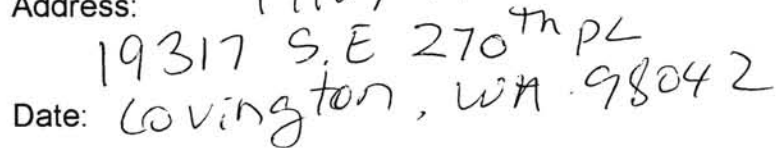 Address:
19317 S.E 270th PL
Date: Covington, WA 98042